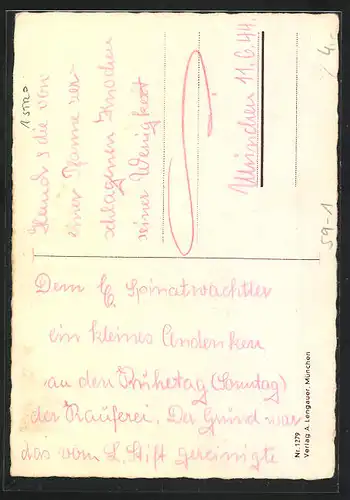 Dem C. Spinatwachtler
ein kleines Andenken
an den Ruhetag (Sonntag)
der Rauferei. Der Grund war
das vom L. Stift gereinigte
Hemd & die von
einer Panne zer-
schlagenen Knochen
seiner Wenigkeit
München 11.6.44.
Nr. 1279
Verlag A. Lengauer, München
59-1
4.-